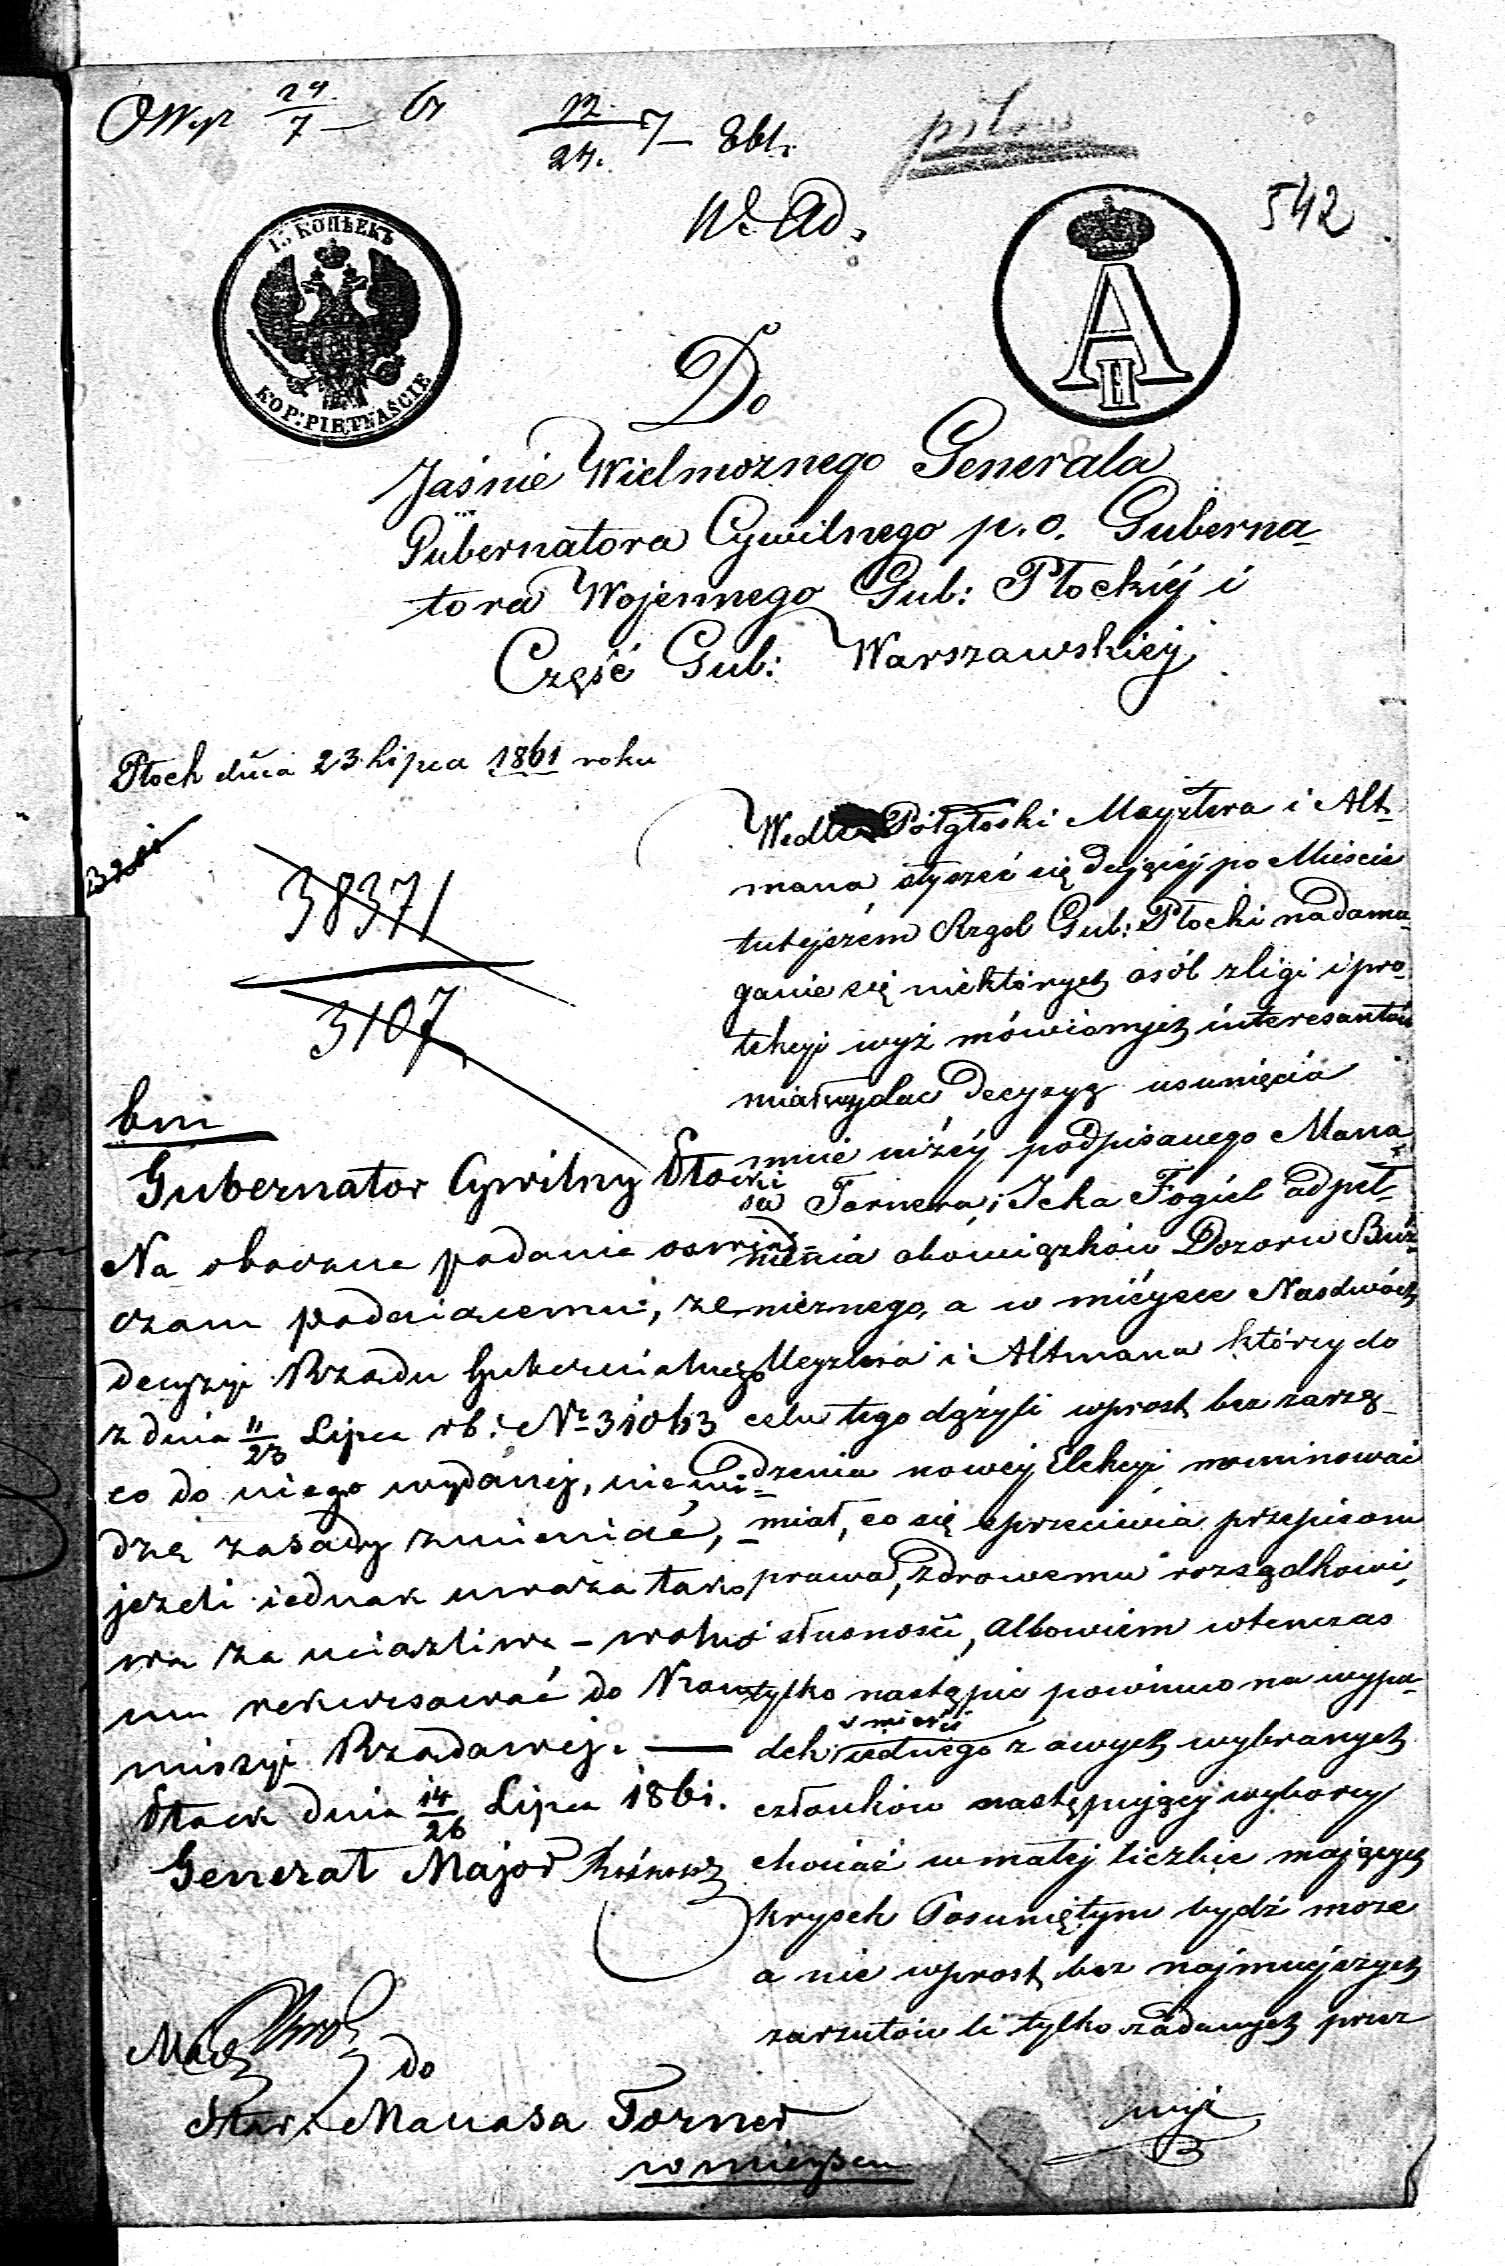 29/7 61
12/24. 7 861.
pilno
W. Ad.
542
15 КОПѢЕКЪ
KOP: PIĘTNAŚCIE
A II
Do
Jaśnie Wielmoznego Generała
Gubernatora Cywilnego p. o. Guberna-
tora Wojennego Gub: Płockiéj i
Część Gub: Warszawskiéj
Płock dnia 23 Lipca 1861 roku
38371
3107
Wedle Pógłoski Mayzlera i Alt-
mana, słyszeć się dającéj po Mieście
tutejszém Rząd Gub: Płocki na doma-
ganie się niektórych osób z ligi i pro-
tekcji wyż mówionych interesantów
miał wydac Decyzyą usunięcia
mnie niżéj podpisanego Mana-
sa Tornera, i Icka Fogiel od peł-
nienia obowiązków Dozoru Bóż-
nicznego, a w miéysce Nas dwóch
Meyzlera i Altmana którzy do
celu tego dążyli wprost bez zarzą-
dzenia nowéy Elekcyi nominować
miał, co się sprzeciwia przepisom
prawa, zdrowemu rozsądkowi,
słusności, albowiem wtenczas
tylko nastąpić powinno na wypa-
dek śmierci jednego z owych wybranych
członków następującéj wyborcy
chociaż w małéj liczbie mających
krysek Posuniętym bydź może
a nie wprost bez najmniejszych
zarzutów li tylko żądanych przez
Gubernator Cywilny Płocki
Na oboczne podanie oświad-
czam podającemu, że
decyzyi Rządu Gubernialnego
z dnia 11/23 Lipca rb: № 31063
co do niego wydanéj, nie wi-
dzę zasady zmieniać,
jeżeli iednak uważa tako-
wą za uciążliwą – wolno
mu rekursować do Kom-
missyi Rządowéj. —
Płock dnia 14/26 Lipca 1861.
Generał Major
do
Star: Manasa Torner
w mieyscu